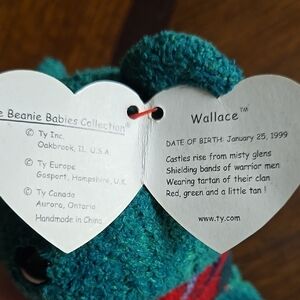 e Beanie Babies Collection®
© Ty Inc.
Oakbrook, IL U.S.A.
© Ty Europe
Gosport, Hampshire, U.K.
© Ty Canada
Aurora, Ontario
Handmade in China
Wallace™
DATE OF BIRTH: January 25, 1999
Castles rise from misty glens
Shielding bands of warrior men
Wearing tartan of their clan
Red, green and a little tan !
www.ty.com